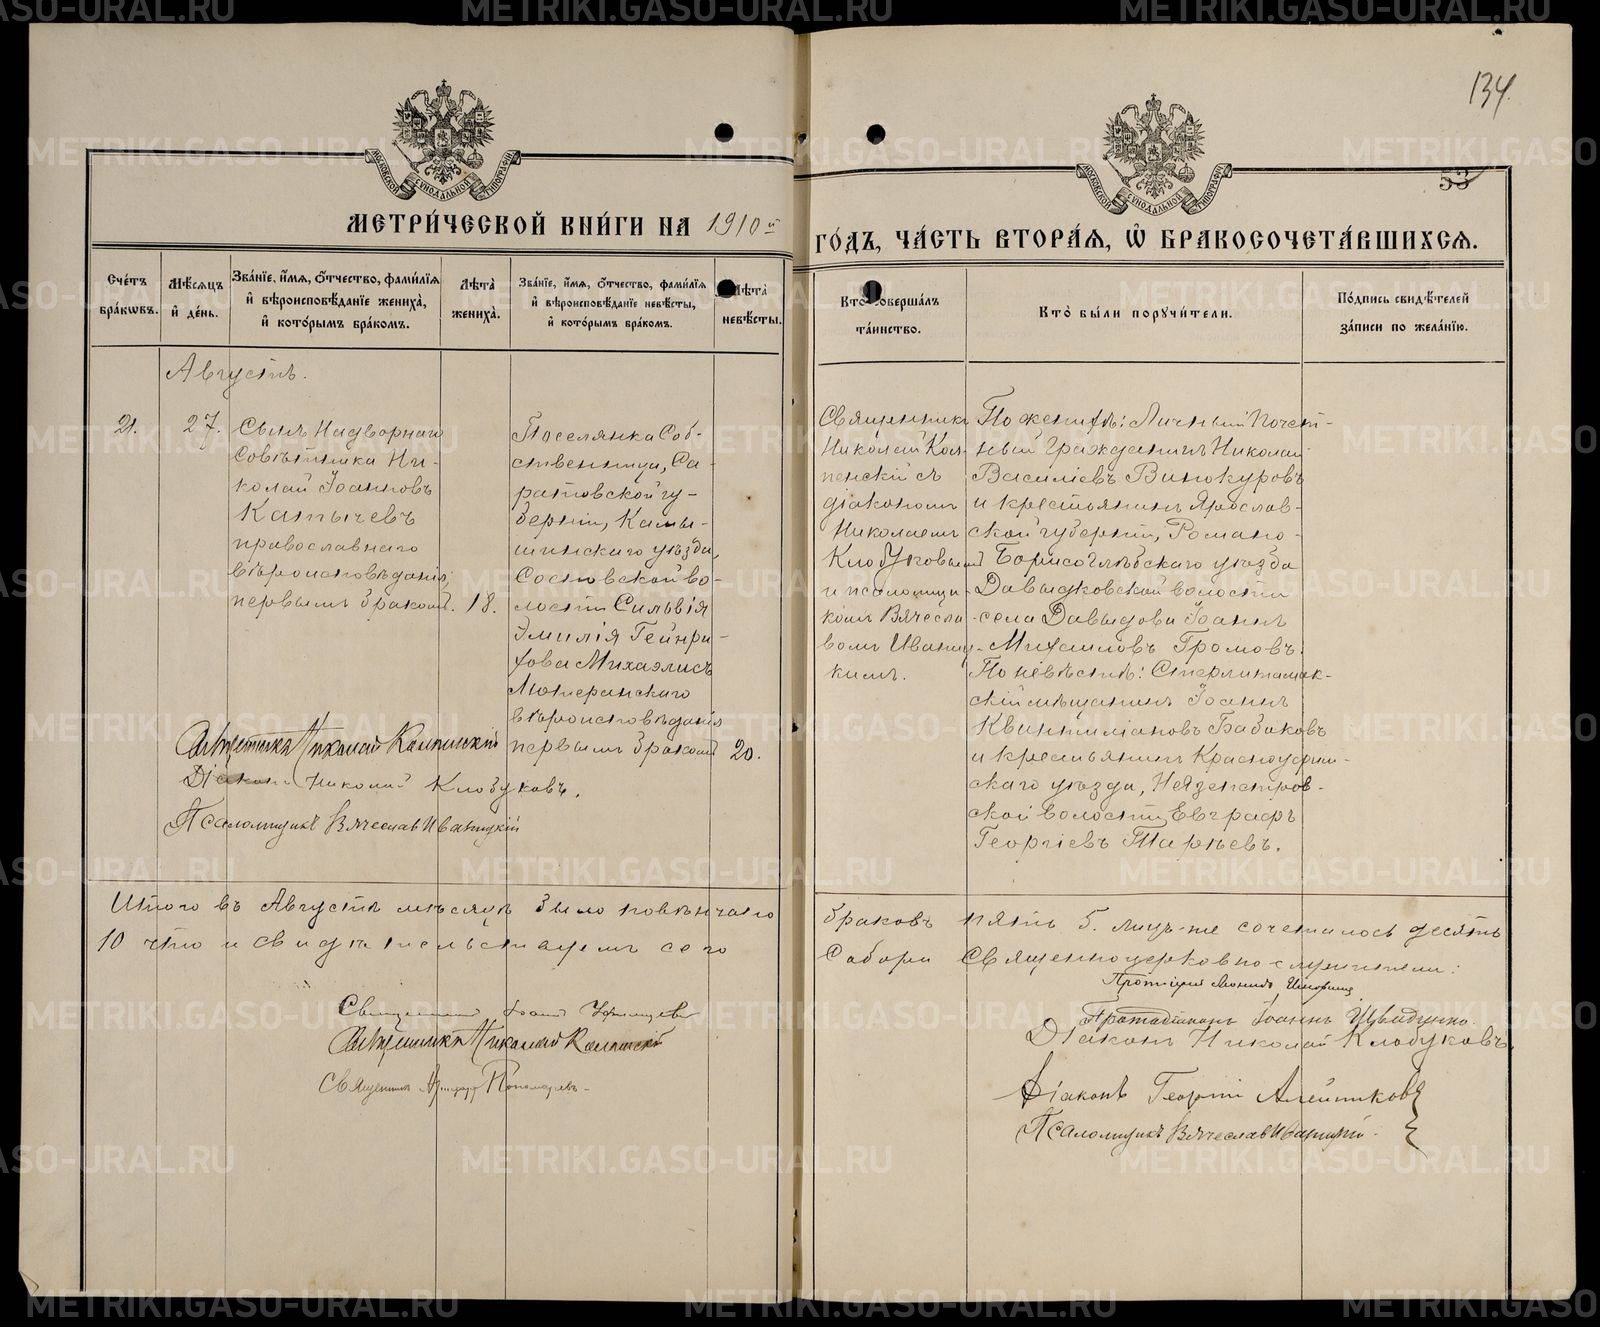 134.
53
МОСКОВСКОЙ СѴНОДАЛЬНОЙ ТИПОГРАФІИ
МОСКОВСКОЙ СѴНОДАЛЬНОЙ ТИПОГРАФІИ
МЕТРИ́ЧЕСКОЙ КНИ́ГИ НА 1910й
ГО́ДЪ, ЧА́СТЬ ВТОРА́Я, Ѡ҆ БРАКОСОЧЕТА́ВШИХСЯ.
Сче́тъ бра́кωвъ.
Мѣ́сяцъ и҆ де́нь.
Зва́нїе, и҆́мя, ѻ҆́тчество, фами́лїя и҆ вѣроисповѣ́данїе жениха̀, и҆ кото́рымъ бра́комъ.
Лѣ́та жениха̀.
Зва́нїе, и҆́мя, ѻ҆́тчество, фами́лїя и҆ вѣроисповѣ́данїе невѣ́сты, и҆ кото́рымъ бра́комъ.
Лѣ́та невѣ́сты.
Кто̀ соверша́лъ та́инство.
Кто̀ бы́ли порꙋчи́тели.
По́дпись свидѣ́телей за́писи по жела́нїю.
Августъ.
21.
27.
Сынъ Надворнаго
Совѣтника Ни-
колай Іоанновъ
Катычевъ
православнаго
вѣроисповѣданія,
первымъ бракомъ.
18.
Поселянка Соб-
ственница, Са-
ратовской гу-
берніи, Камы-
шинскаго уѣзда,
Сосновской во-
лости Сильвія
Эмилія Гейнри-
хова Михаэлисъ
Лютеранскаго
вѣроисповѣданія
первымъ бракомъ
20.
Священникъ
Николай
съ
діакономъ
Николаемъ
Клобуковымъ
и псаломщи-
комъ Вячесла-
вомъ Иваниц-
кимъ.
По женихѣ: Личный Почет-
ный Гражданинъ Николай
Василіевъ Винокуровъ
и крестьянинъ Ярослав-
ской губерніи, Романо-
Борисоглѣбскаго уѣзда
Давыдковской волости
села Давыдова Іоаннъ
Михаиловъ Громовъ.
По невѣстѣ: Стерлитамак-
скій мѣщанинъ Іоаннъ
Квинтиліановъ Бабаковъ
и крестьянинъ Красноуфим-
скаго уѣзда, Нязепетров-
ской волости Евграфъ
Георгіевъ
Священникъ Николай
Діаконъ Николай Клобуковъ.
Псаломщикъ Вячеславъ Иваницкій
Итого въ Августѣ мѣсяцѣ было повѣнчано
браковъ пять 5. лицъ-же сочеталось десять
10 что и свидѣтельствуемъ сего
Собора Священноцерковно-служители:
Священникъ Іоаннъ
Священникъ Николай
Священникъ Пономаревъ
Протоіерей
Протодіаконъ Іоаннъ
Діаконъ Николай Клобуковъ.
Діаконъ Георгій Алейниковъ
Псаломщикъ Вячеславъ Иваницкій.
METRIKI.GASO-URAL.RU